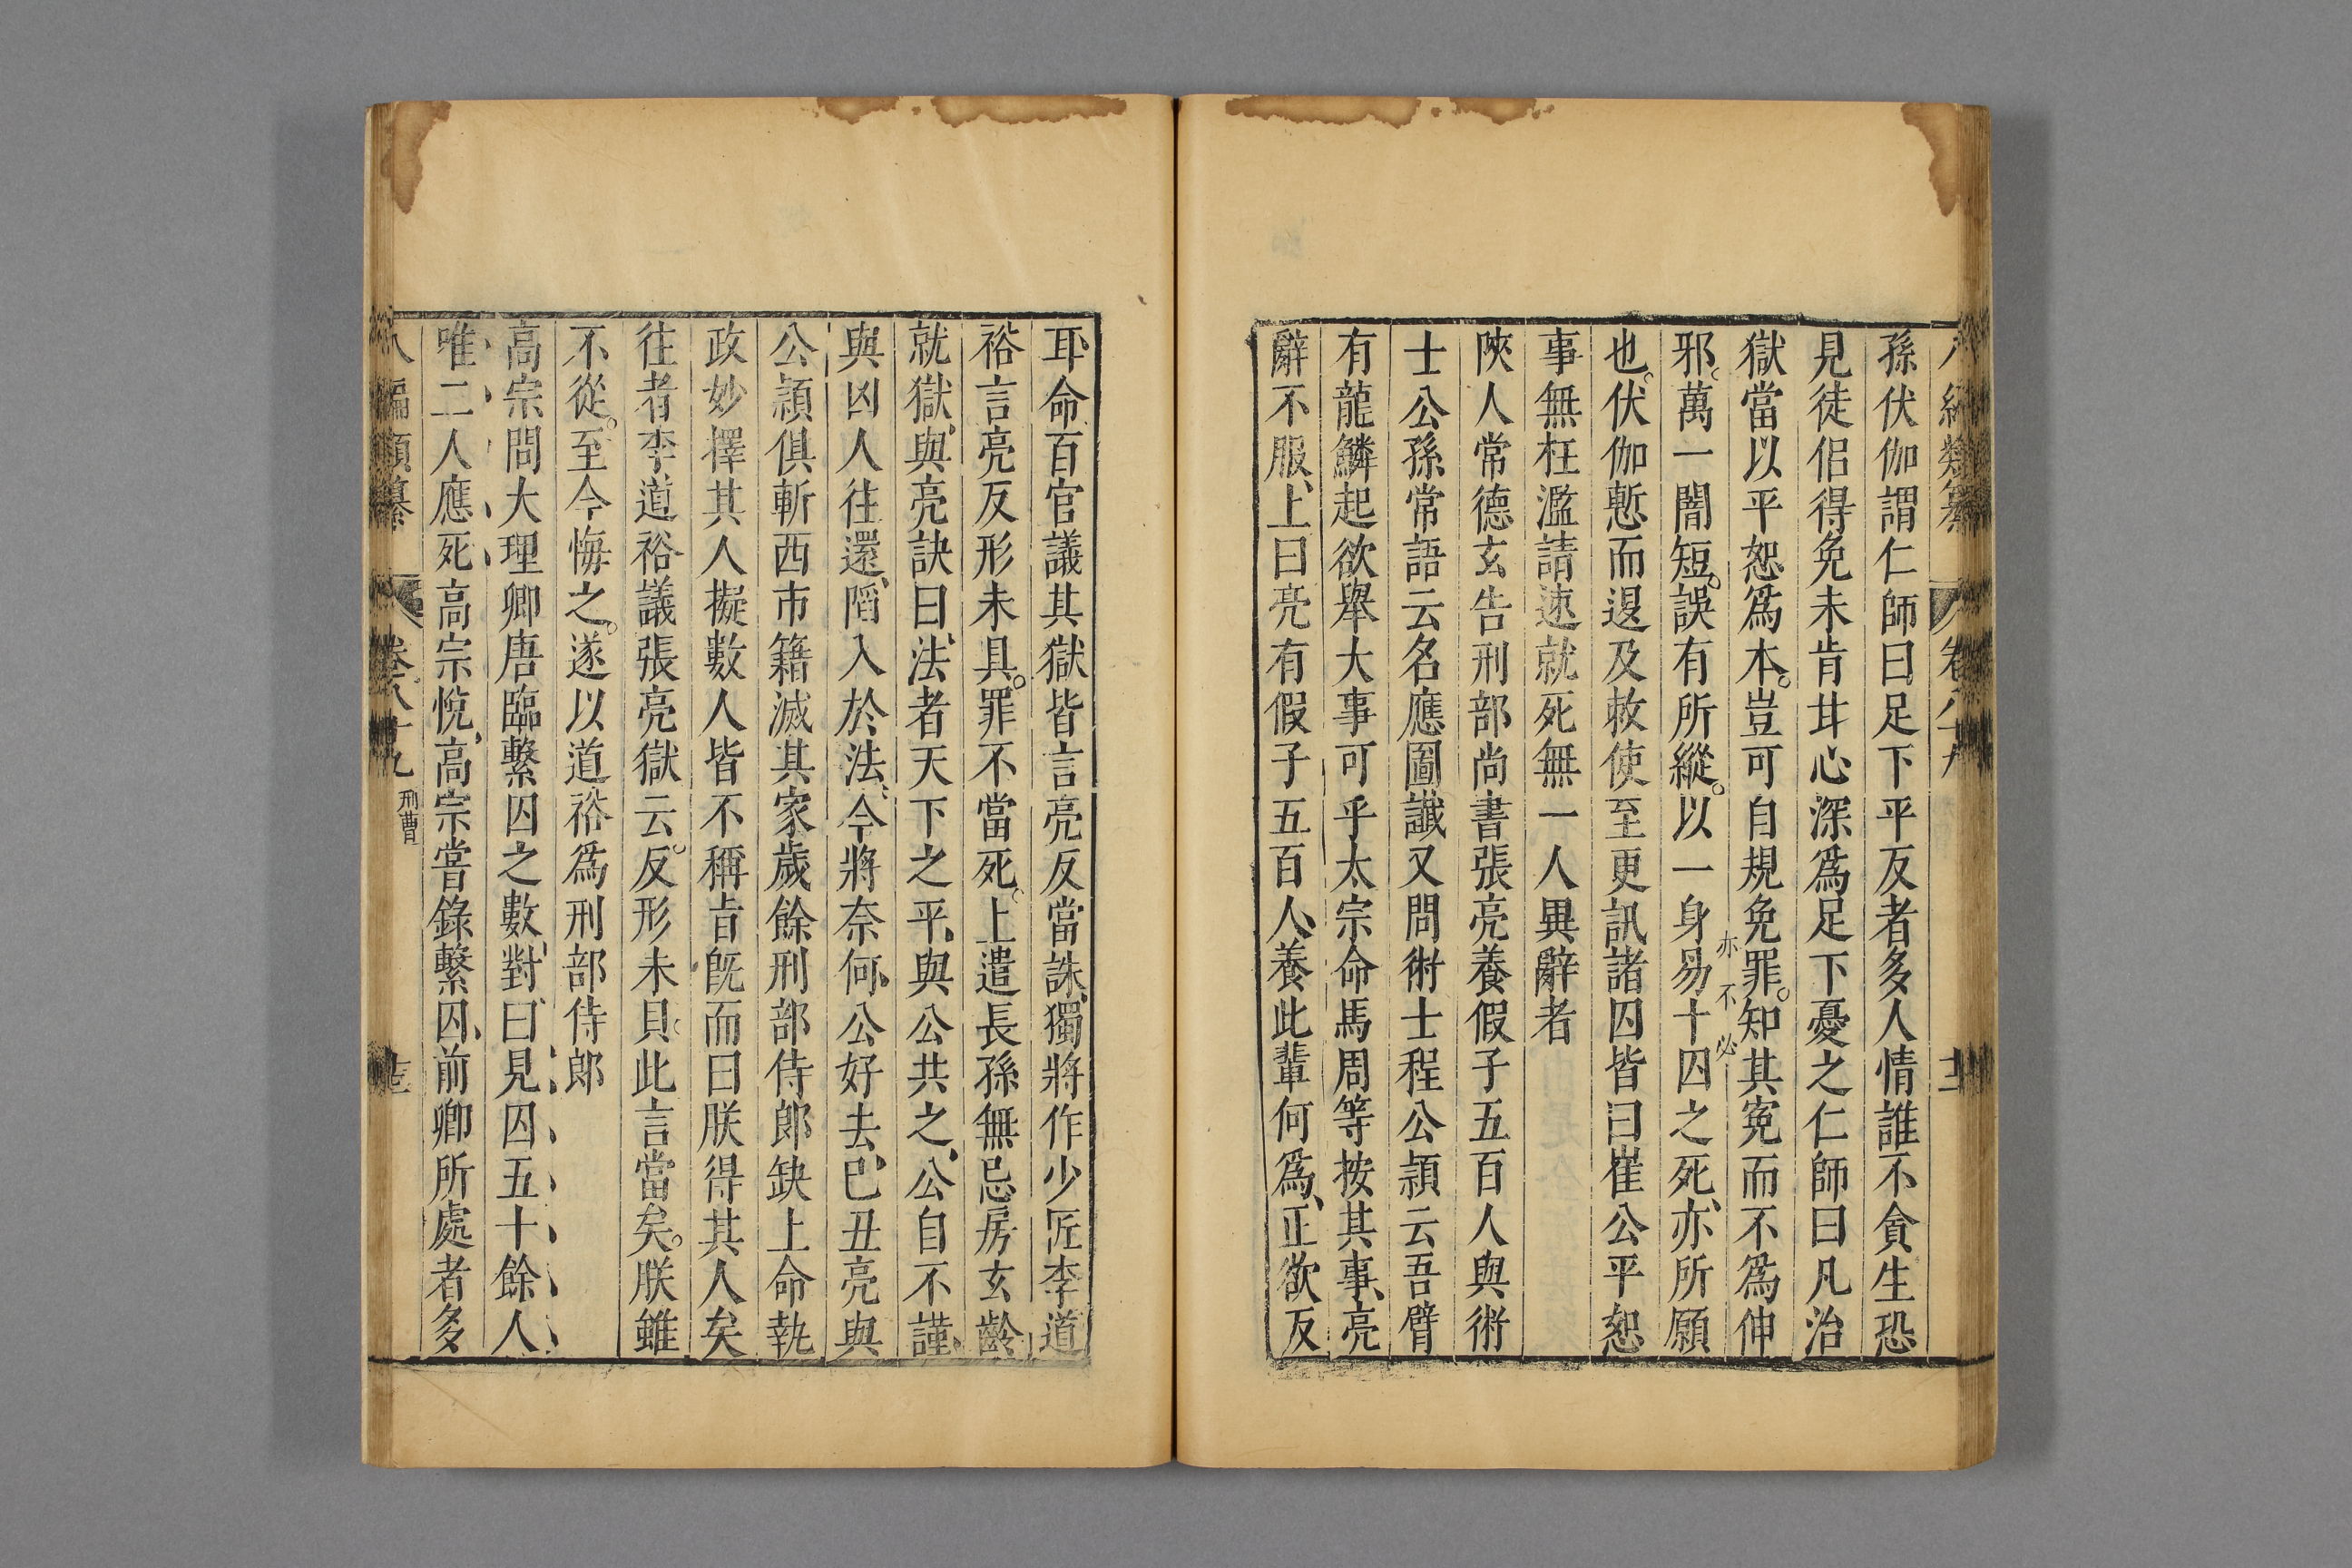 孫伏伽謂仁師曰足下平反者多人情誰不貪生恐
見徒侶得免未肯甘心深爲足下憂之仁師曰凡治
獄當以平恕爲本豈可自規免罪知其寃而不爲伸
亦不必
邪萬一闇短誤有所縱以一身易十囚之死亦所願
也伏伽慙而退及敕使至更訊諸囚皆曰崔公平恕
事無枉濫請速就死無一人異辭者
陝人常德玄告刑部尚書張亮養假子五百人與術
士公孫常語云名應圖讖又問術士程公頴云吾臂
有龍鱗起欲舉大事可乎太宗命馬周等按其事亮
辭不服上曰亮有假子五百人養此輩何爲正欲反
耳命百官議其獄皆言亮反當誅獨將作少匠李道
裕言亮反形未具罪不當死上遣長孫無忌房玄齡
就獄與亮訣曰法者天下之平與公共之公自不謹
與凶人往還陷入於法今將奈何公好去巳丑亮與
公頴俱斬西市籍滅其家歲餘刑部侍郎缺上命執
政妙擇其人擬數人皆不稱旨旣而曰朕得其人矣
往者李道裕議張亮獄云反形未具此言當矣朕雖
不從至今悔之遂以道裕爲刑部侍郎
高宗問大理卿唐臨繫囚之數對曰見囚五十餘人
唯二人應死高宗悅高宗嘗錄繫囚前卿所處者多
八編類纂 卷八十九 刑曹